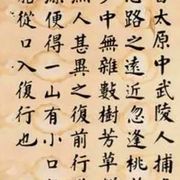 晉太原中武陵人捕
忘路之遠近忽逢桃
步中無雜數樹芳草
人甚異之復前行
源便得一山有小口
從口入復行也